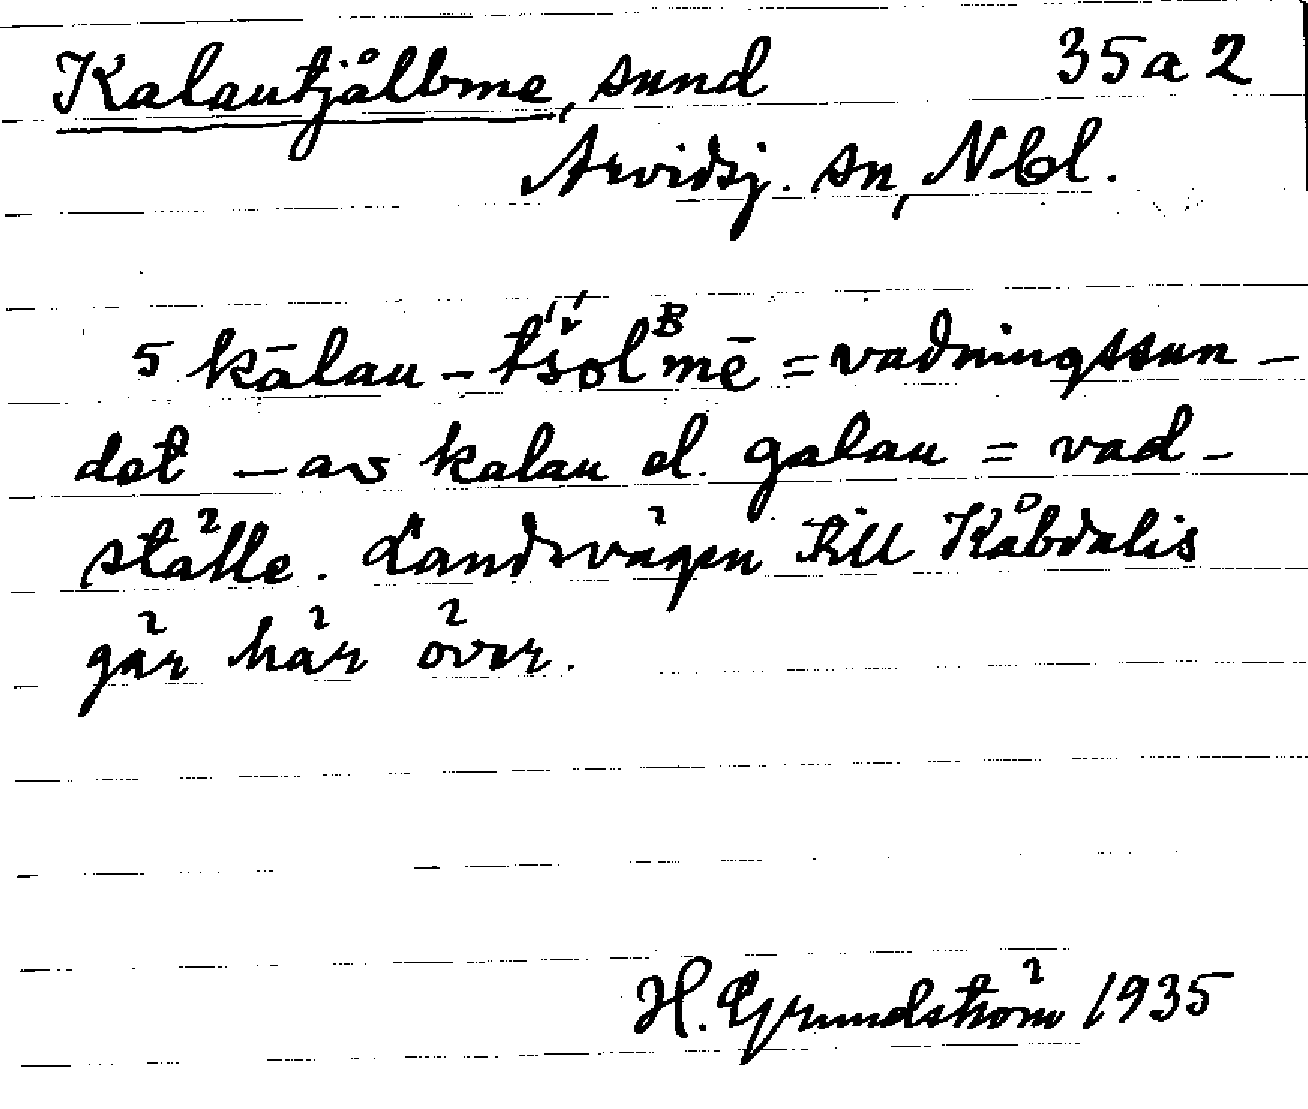 Kalautjålbme, sund 35a2
Arvidsj. sn, Nbl.
5 kālau - tšolᴮmē = vadningssun-
det - av kalau el. galau = vad-
ställe. Landsvägen till Kåbdalis
går här över.
H. Grundström 1935